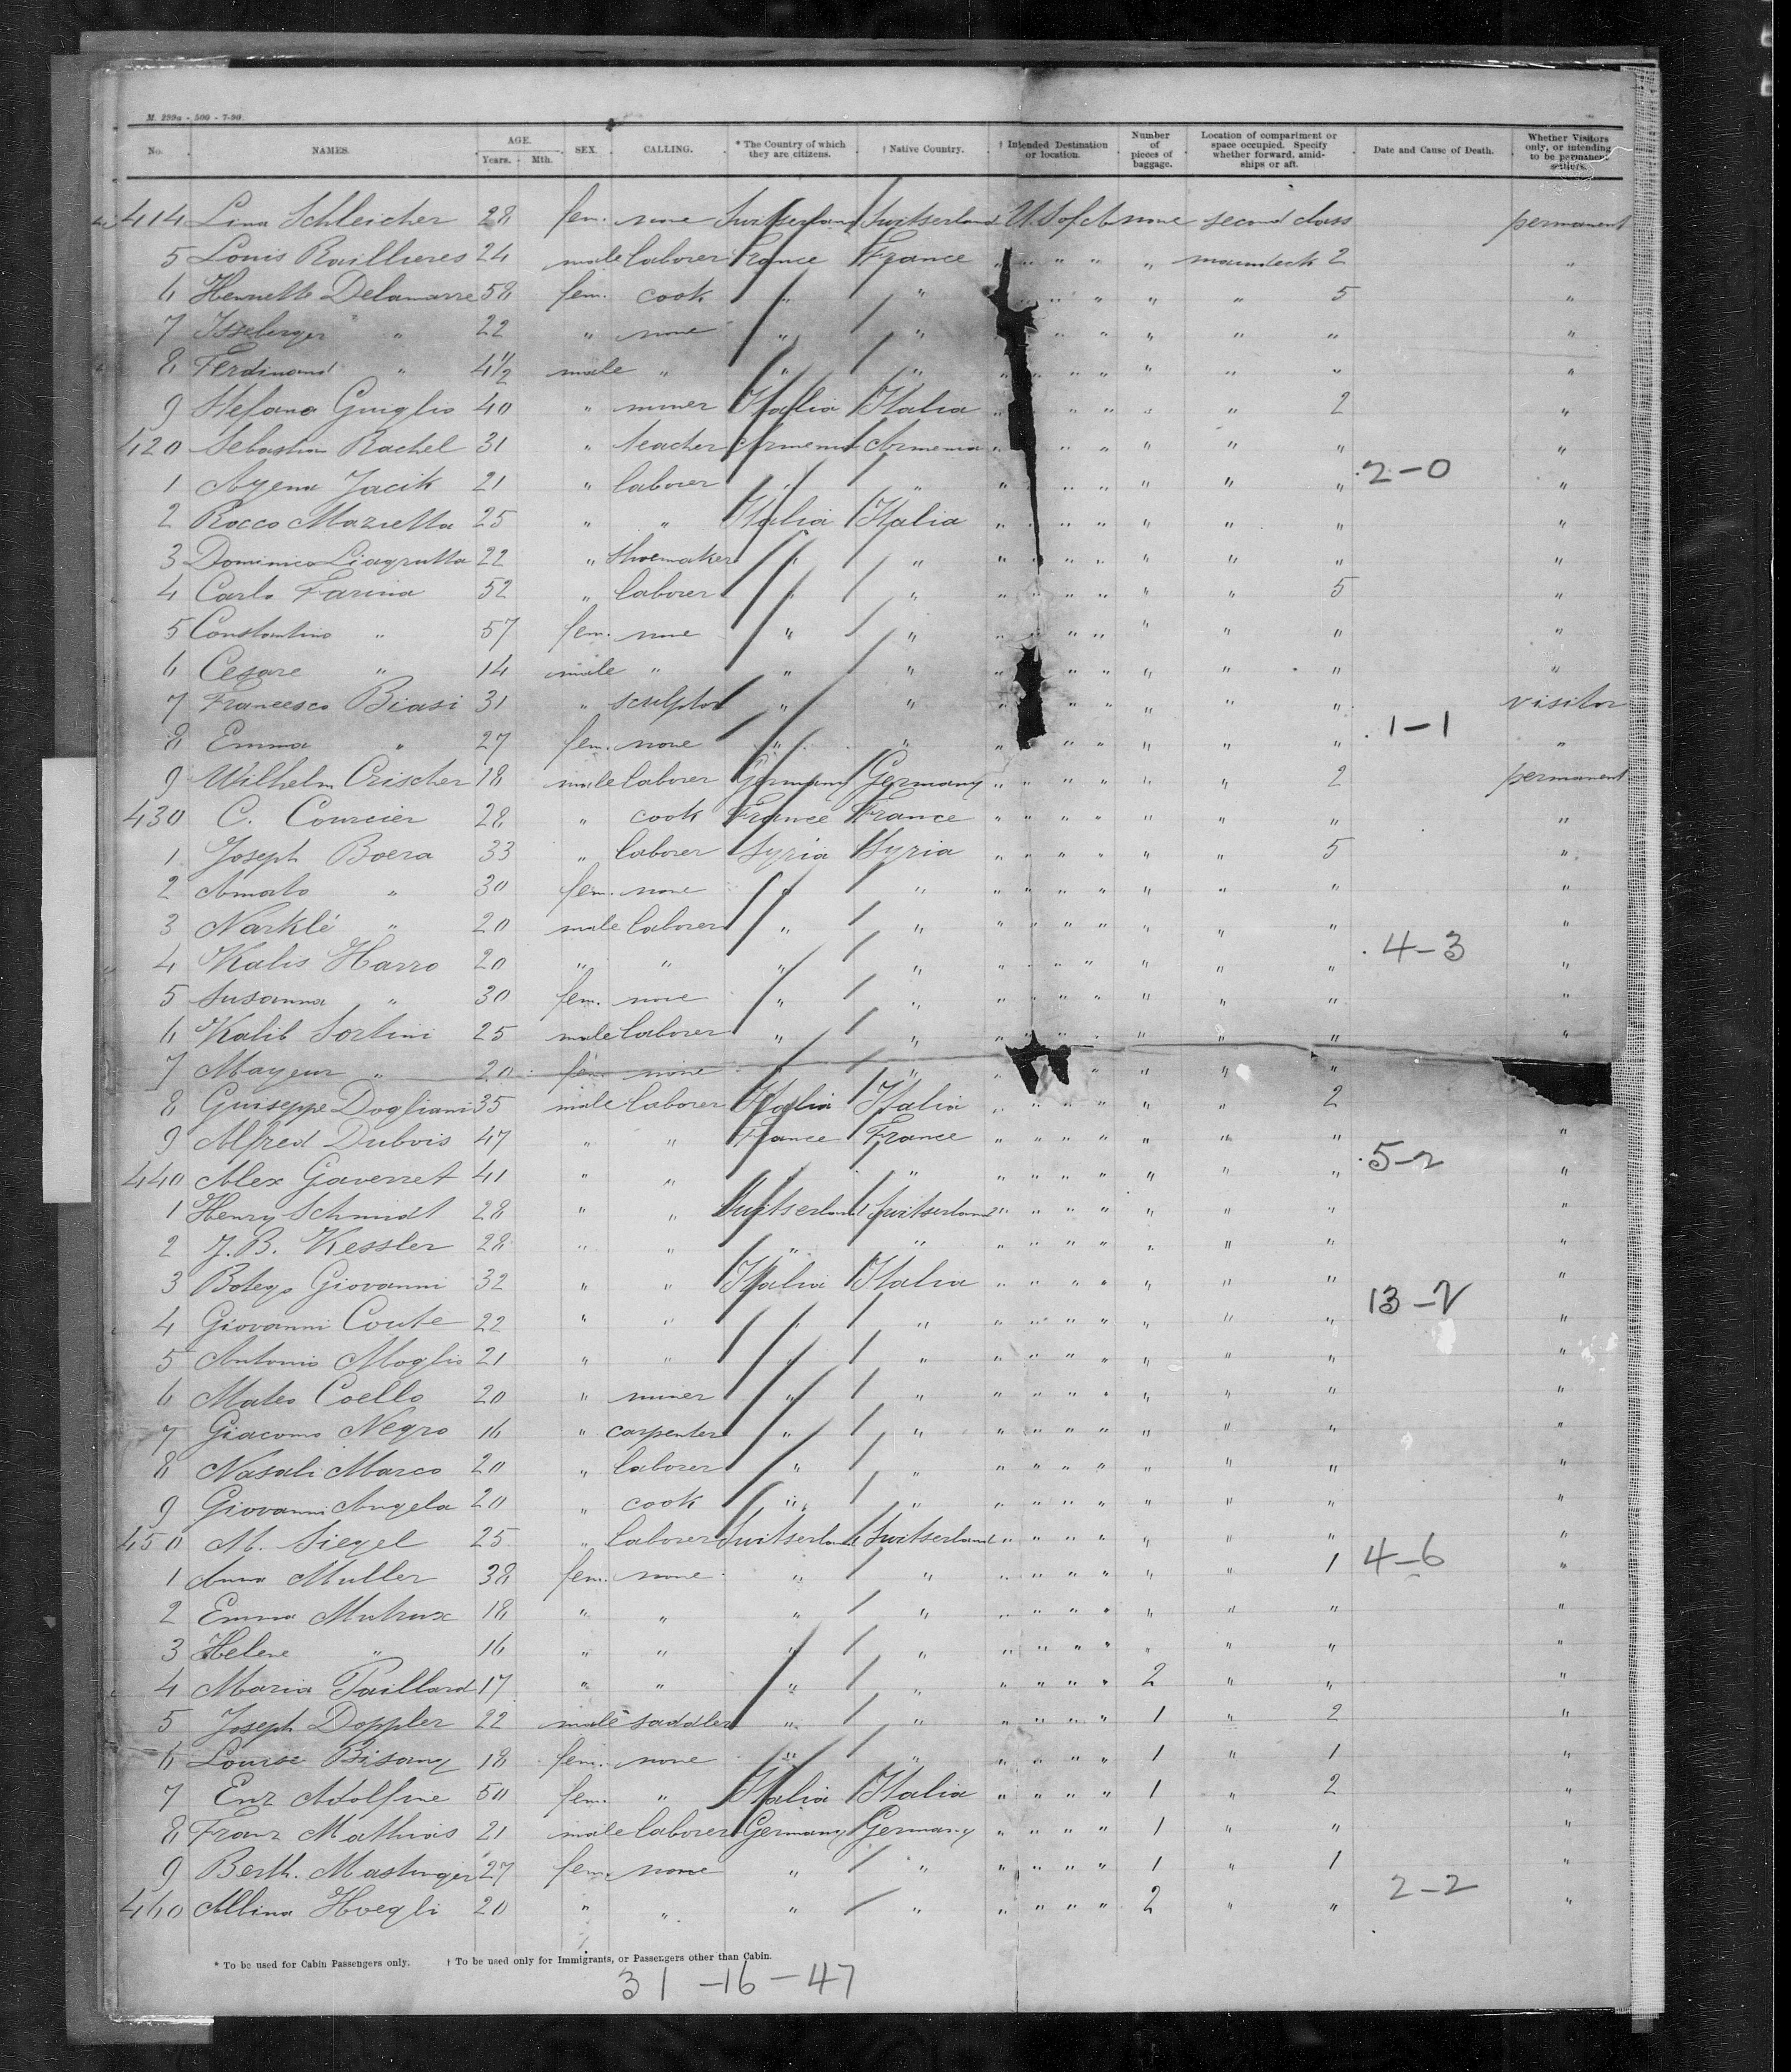 M. 299a - 500 - 7-90.
No. NAMES. AGE. Years. - Mth. SEX. CALLING. * The Country of which they are citizens. † Native Country. † Intended Destination or location. Number of pieces of baggage. Location of compartment or space occupied. Specify whether forward, amidships or aft. Date and Cause of Death. Whether Visitors only, or intending to be permanent settlers.
414 Lina Schleicher 28 fem. none Switserland Switserland U.S. of A. none second class permanent
5 Louis Raillieres 24 male laborer France France " " " " " maindeck 2 "
6 Hennette Delamarre 58 fem. cook " " " " " " " 5 "
7 " 22 " none " " " " " " " "
8 Ferdinand " 4 1/2 male " " " " " " " " " "
9 Stefano Guiglio 40 " miner Italia Italia " " " " " " 2 "
420 Sebastian Rachel 31 " teacher Armenia Armenia " " " " " " " "
1 Ayema Jacik 21 " laborer " " " " " " " " " 2-0 "
2 Rocco Marietta 25 " " Italia Italia " " " " " " " "
3 Dominico Liagrutta 22 " Shoemaker " " " " " " " " " "
4 Carlo Farina 52 " laborer " " " " " " " " 5 "
5 Constantino " 57 fem. none " " " " " " " " " "
6 Cesare " 14 male " " " " " " " " " " "
7 Francesco Biasi 31 " sculptor " " " " " " " " " visitor
8 Emma " 27 fem. none " " " " " " " " 1-1 "
9 Wilhelm Crischer 18 male laborer Germany Germany " " " " " " 2 permanent
430 C. Courcier 28 " cook France France " " " " " " " "
1 Joseph Boera 33 " laborer Syria Syria " " " " " " 5 "
2 Amato " 30 fem. none " " " " " " " " " "
3 Narklé " 20 male laborer " " " " " " " " " "
4 Kalis Harro 20 " " " " " " " " " " " 4-3 "
5 Susanna " 30 fem. none " " " " " " " " " "
6 Kalib Sortini 25 male laborer " " " " " " " " " "
7 Mayeur " 20 fem. none " " " " " " " "
8 Guiseppe Dogliani 35 male laborer Italia Italia " " " " " " 2
9 Alfred Dubois 47 " " France France " " " " " " " "
440 Alex Gaverret 41 " " " " " " " " " " " 5-2 "
1 Henry Schmidt 28 " " Switserland Switserland " " " " " " " "
2 J. B. Kessler 28 " " " " " " " " " " " "
3 Botego Giovanni 32 " " Italia Italia " " " " " " " "
4 Giovanni Conte 22 " " " " " " " " " " " 13-2 "
5 Antonio Moglio 21 " " " " " " " " " " " "
6 Mateo Coello 20 " miner " " " " " " " " " "
7 Giacomo Negro 16 " carpenter " " " " " " " " " "
8 Nasali Marco 20 " laborer " " " " " " " " " "
9 Giovanni Angela 20 " cook " " " " " " " " " "
450 M. Siegel 25 " laborer Switserland Switserland " " " " " " " "
1 Anna Muller 38 fem. none " " " " " " " " 1 4-6 "
2 Emma Mutrux 18 " " " " " " " " " " " "
3 Helene " 16 " " " " " " " " " " " "
4 Maria Paillard 17 " " " " " " " " 2 " " "
5 Joseph Doppler 22 male saddler " " " " " " 1 " 2 "
6 Louise Bisang 18 fem. none " " " " " " 1 " 1 "
7 Enz Adolfine 50 fem. " Italia Italia " " " " 1 " 2 "
8 Franz Mathias 21 male laborer Germany Germany " " " " 1 " " "
9 Berth. Mastinger 27 fem. none " " " " " " 1 " 1 "
460 Albina Hoegli 20 " " " " " " " " 2 " " 2-2 "
* To be used for Cabin Passengers only. † To be used only for Immigrants, or Passengers other than Cabin.
31-16-47